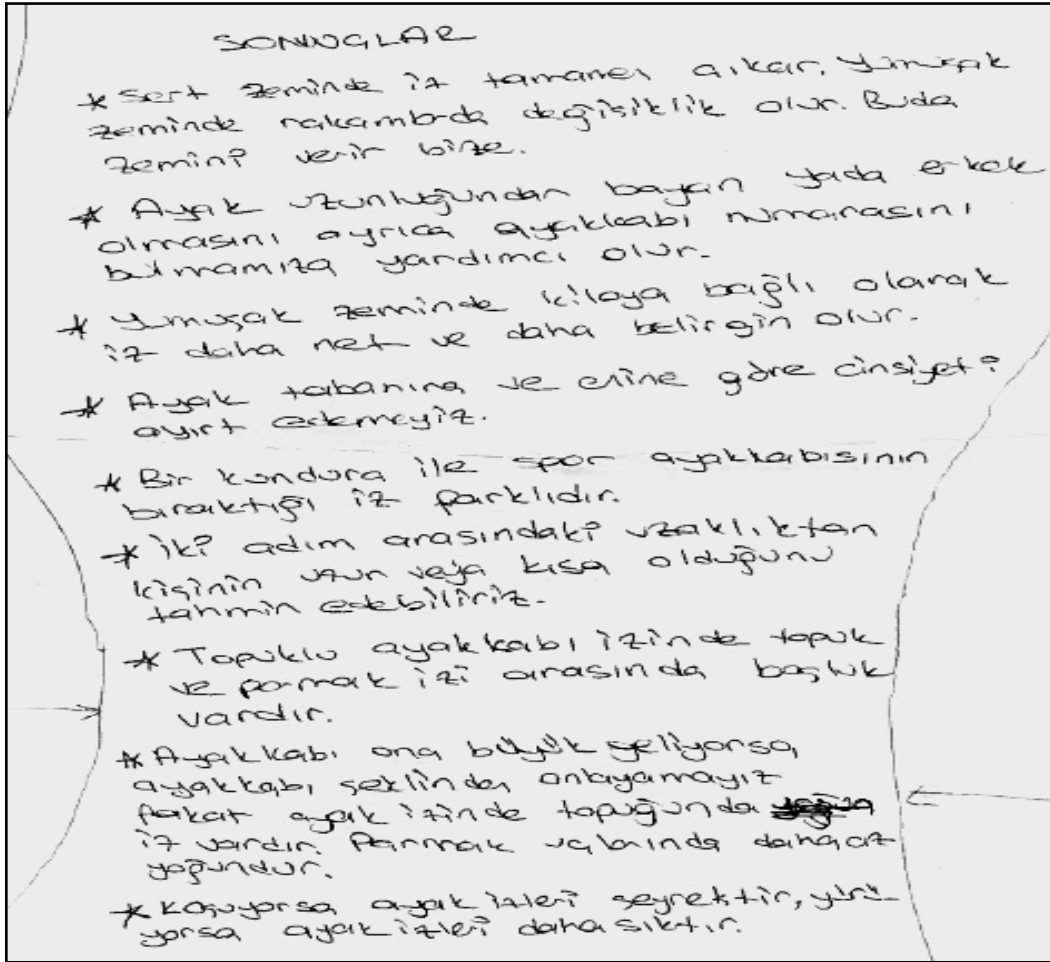 SONUÇLAR
* Sert zeminde iz tamamen çıkar. Yumuşak
zeminde rakamlarda değişiklik olur. Buda
zemini verir bize.
* Ayak uzunluğundan bayan yada erkek
olmasını ayrıca ayakkabı numarasını
bulmamıza yardımcı olur.
* Yumuşak zeminde kiloya bağlı olarak
iz daha net ve daha belirgin olur.
* Ayak tabanına ve enine göre cinsiyeti
ayırt edemeyiz.
* Bir kundura ile spor ayakkabısının
bıraktığı iz farklıdır.
* İki adım arasındaki uzaklıktan
kişinin uzun veya kısa olduğunu
tahmin edebiliriz.
* Topuklu ayakkabı izinde topuk
ve parmak izi arasında boşluk
vardır.
* Ayakkabı ona büyük geliyorsa,
ayakkabı şeklinden anlayamayız
fakat ayak izinde topuğunda
iz vardır. Parmak uçlarında daha az
yoğundur.
* Koşuyorsa ayak izleri seyrektir, yürü-
yorsa ayak izleri daha sıktır.